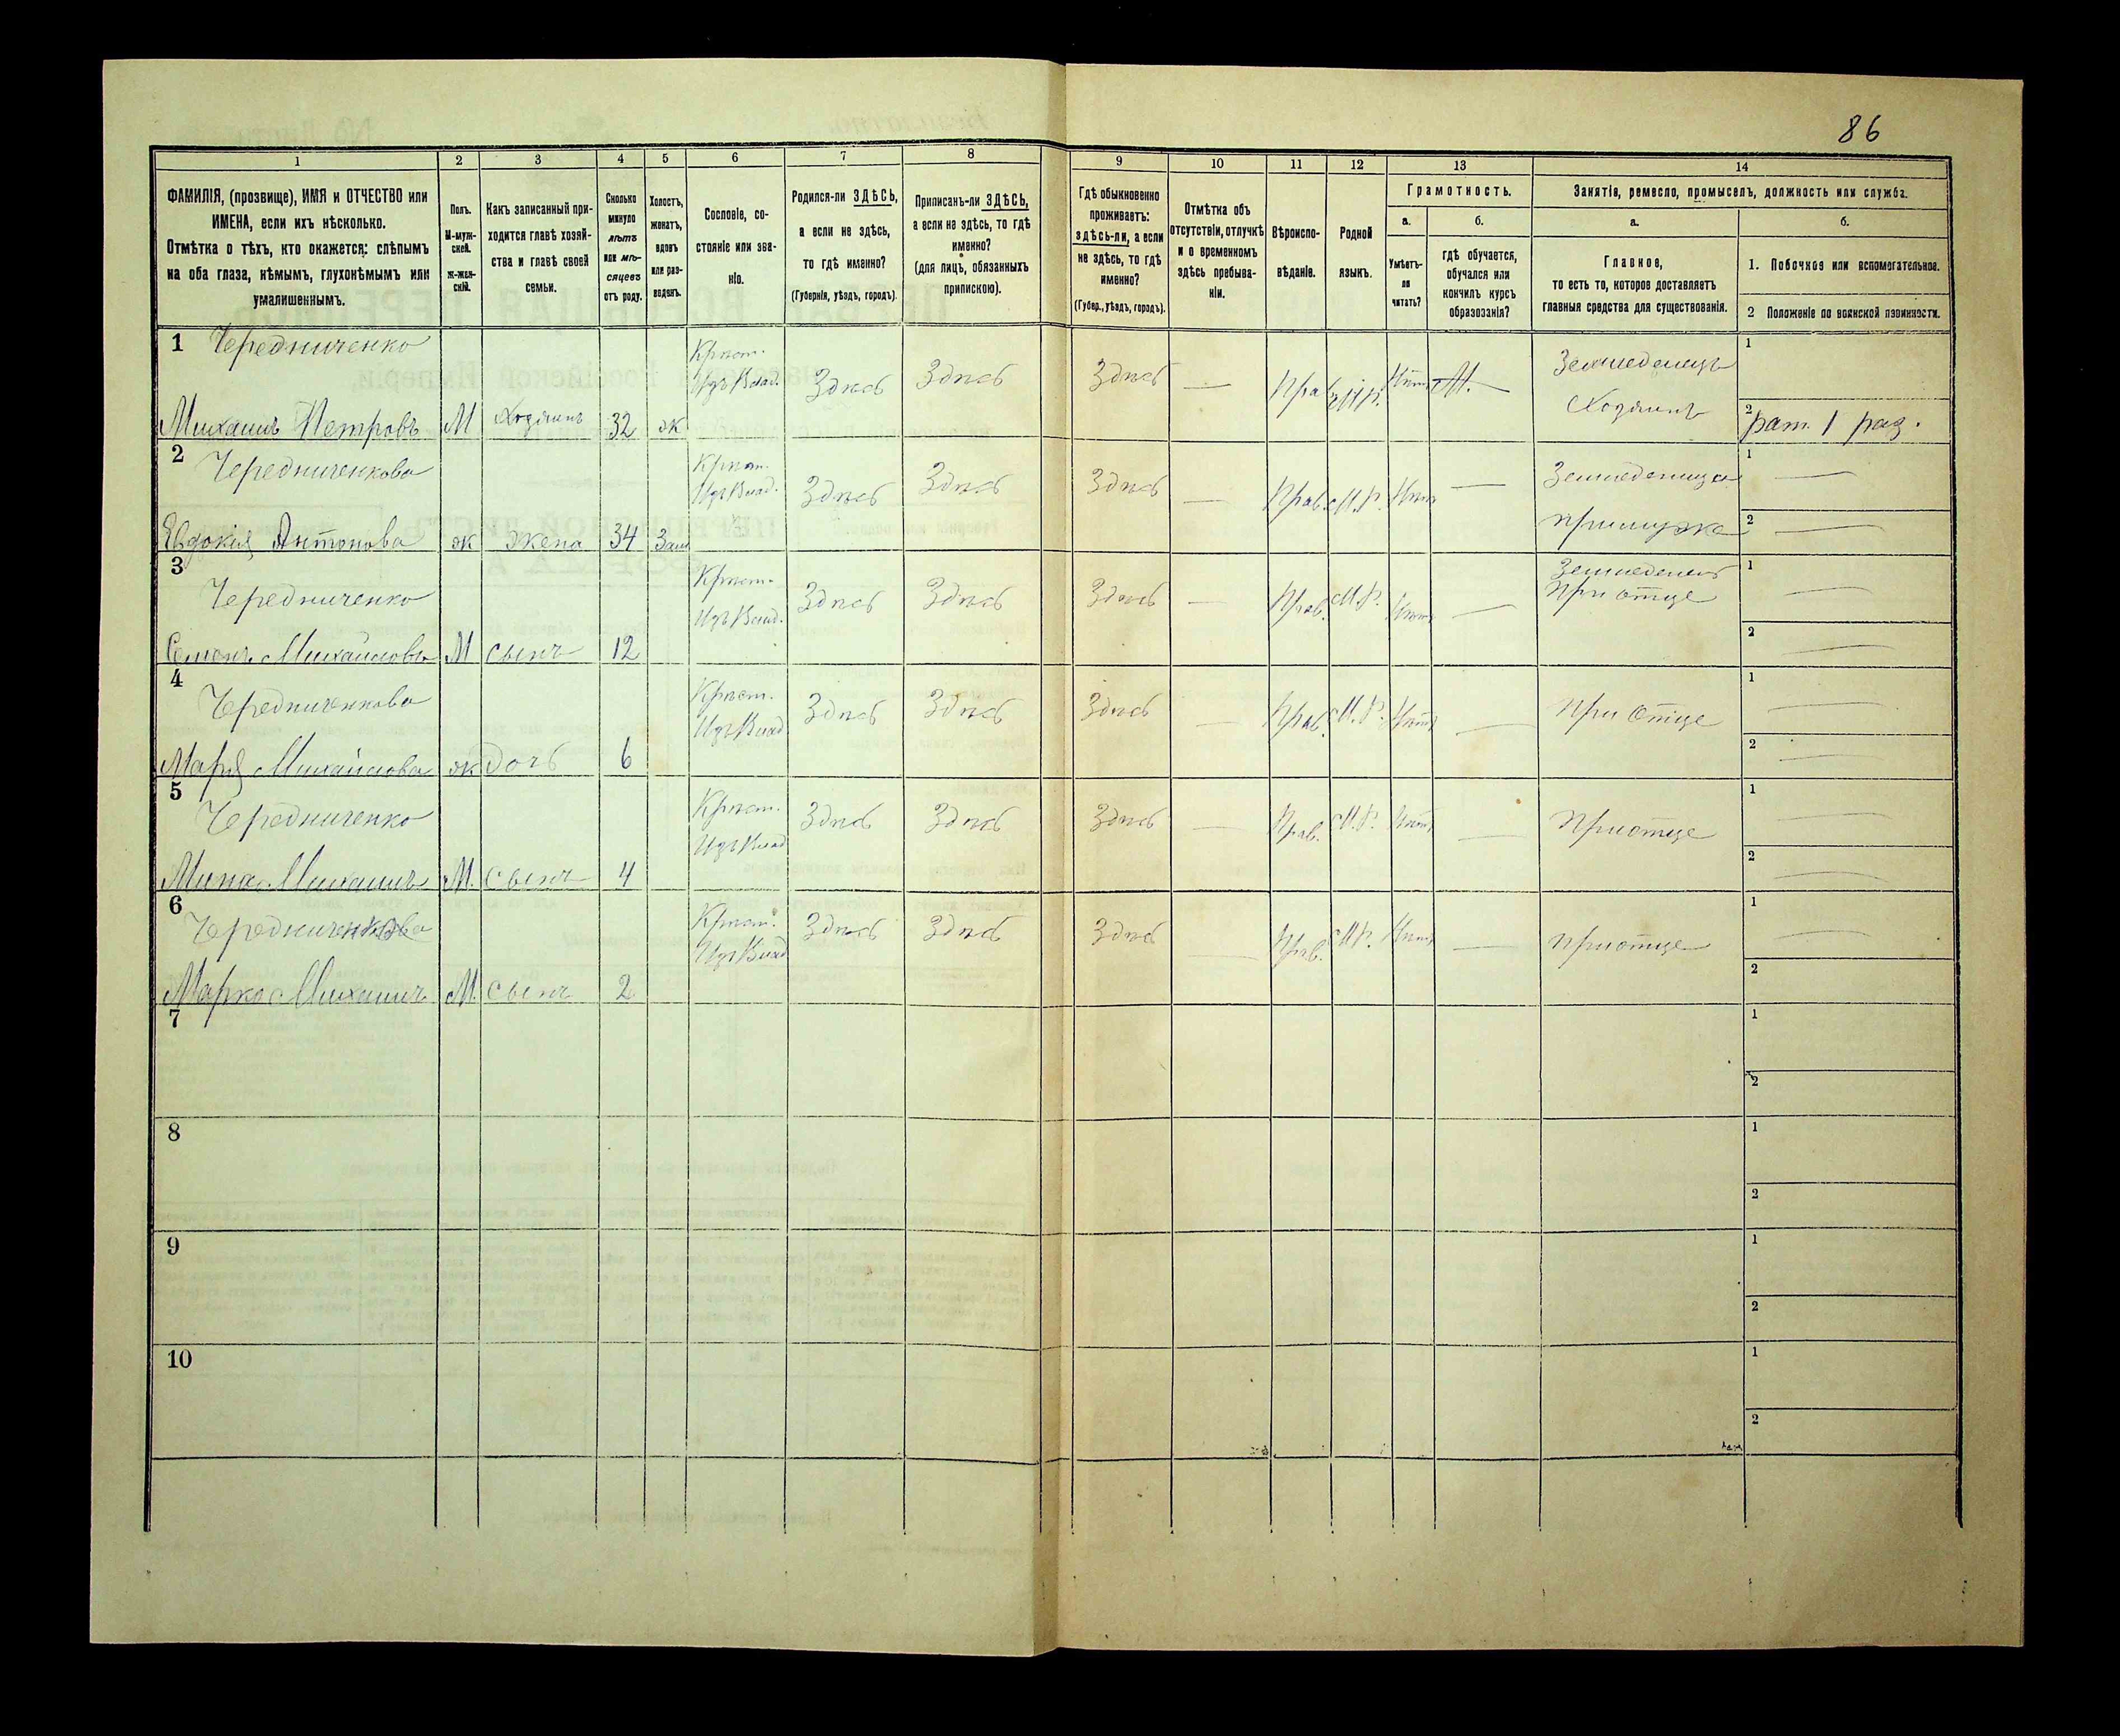 86
1 2 3 4 5 6 7 8 9 10 11 12 13 14
ФАМИЛІЯ, (прозвище), ИМЯ и ОТЧЕСТВО или
ИМЕНА, если ихъ нѣсколько.
Отмѣтка о тѣхъ, кто окажется: слѣпымъ
на оба глаза, нѣмымъ, глухонѣмымъ или
умалишеннымъ.
Полъ.
М-муж-
ской.
ж-жен-
скій.
Какъ записанный при-
ходится главѣ хозяй-
ства и главѣ своей
семьи.
Сколько
минуло
лѣтъ
или мѣ-
сяцевъ
отъ роду.
Холостъ,
женатъ,
вдовъ
или раз-
веденъ.
Сословіе, со-
стояніе или зва-
ніе.
Родился-ли ЗДѢСЬ,
а если не здѣсь,
то гдѣ именно?
(Губернія, уѣздъ, городъ).
Приписанъ-ли ЗДѢСЬ,
а если не здѣсь, то гдѣ
именно?
(для лицъ, обязанныхъ
припискою).
Гдѣ обыкновенно
проживаетъ:
здѣсь-ли, а если
не здѣсь, то гдѣ
именно?
(Губер., уѣздъ, городъ).
Отмѣтка объ
отсутствіи, отлучкѣ
и о временномъ
здѣсь пребыва-
ніи.
Вѣроиспо-
вѣданіе.
Родной
языкъ.
Грамотность.
а.
Умѣетъ-
ли
читать?
б.
гдѣ обучается,
обучался или
кончилъ курсъ
образованія?
Занятіе, ремесло, промыселъ, должность или служба.
а.
Главное,
то есть то, которое доставляетъ
главныя средства для существованія.
б.
1. Побочное или вспомогательное.
2 Положеніе по воинской повинности.
1 Чередниченко
Михаилъ Петровъ М Хозяинъ 32 ж
Крѣст.
Здѣсь Здѣсь Здѣсь — М.
Земледелецъ
Хозяинъ
1
2 рат. 1 раз.
2 Чередниченкова
Евдокія Антонова ж жена 34 Зам
Здѣсь Здѣсь Здѣсь — Прав. М.Р. —
Земледелица
при муже
1 —
2 —
3 Чередниченко
Семенъ Михайловъ М сынъ 12
Крѣст.
Здѣсь Здѣсь Здѣсь — Прав. М.Р. —
Земледелец
При отце
1 —
2 —
4 Чередниченкова
Марія Михайлова ж дочь 6
Крѣст.
Здѣсь Здѣсь Здѣсь — Прав. М.Р. —
При отце
1 —
2 —
5 Чередниченко
Мина Михаилъ М. сынъ 4
Крѣст.
Здѣсь Здѣсь Здѣсь — Прав. М.Р. —
При отце
1 —
2 —
6
Марко Михаилъ М. сынъ 2
Крѣст.
Здѣсь Здѣсь Здѣсь — Прав. М.Р. —
при отце
1 —
2
7 1
2
8 1
2
9 1
2
10 1
2